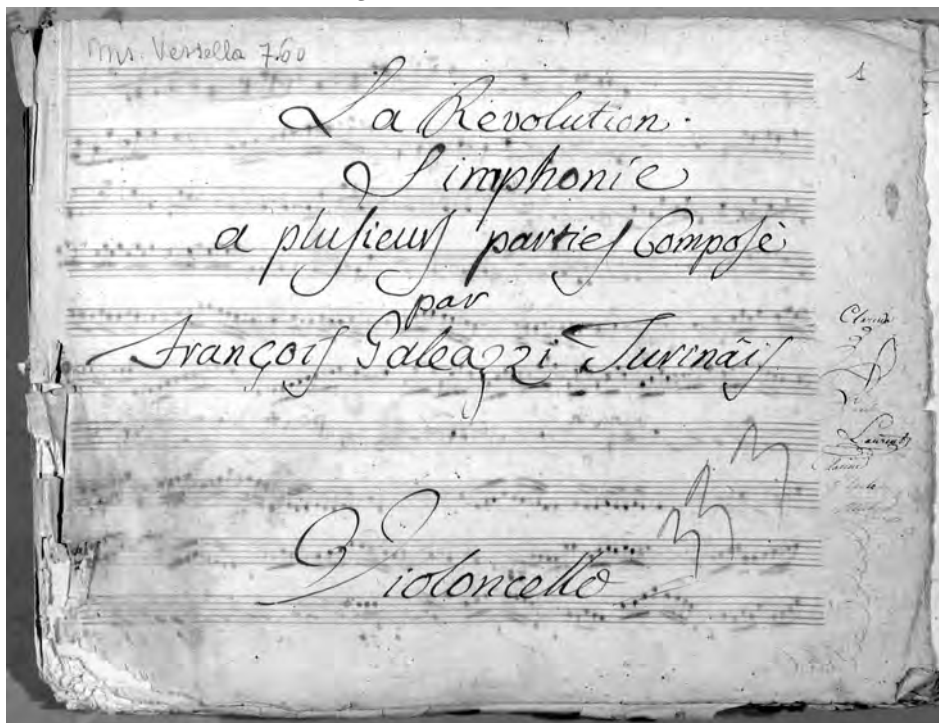 Ms. Vessella 760
1
La Révolution.
Simphonie
a plusieurs parties Composé
par
François Galeazzi Turinäis
Violoncello